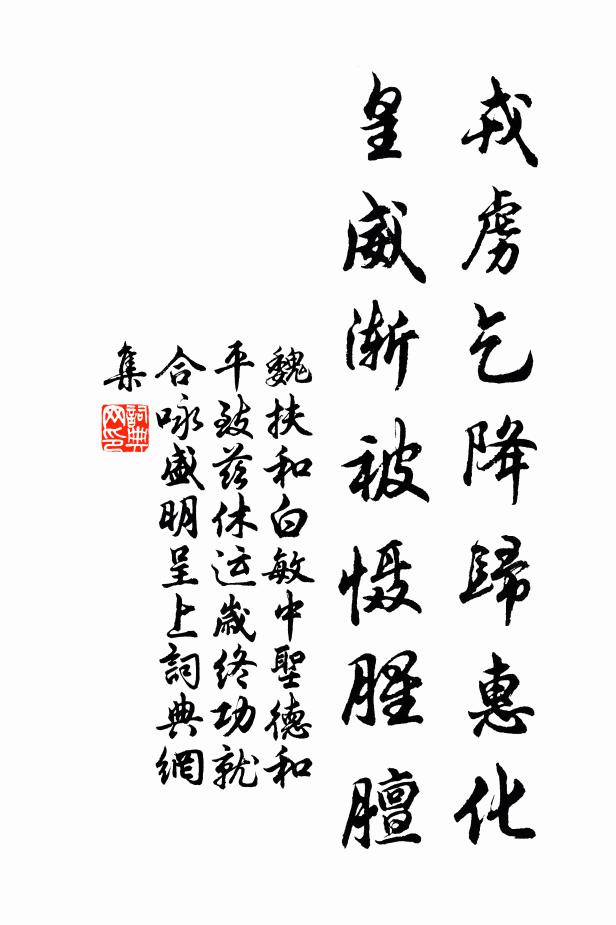 戎虏乞降歸惠化
皇威漸被慑腥膻
魏扶和白敏中聖德和
平致兹休运歲终功就
合咏盛明呈上詞典網
集
詞典
网印